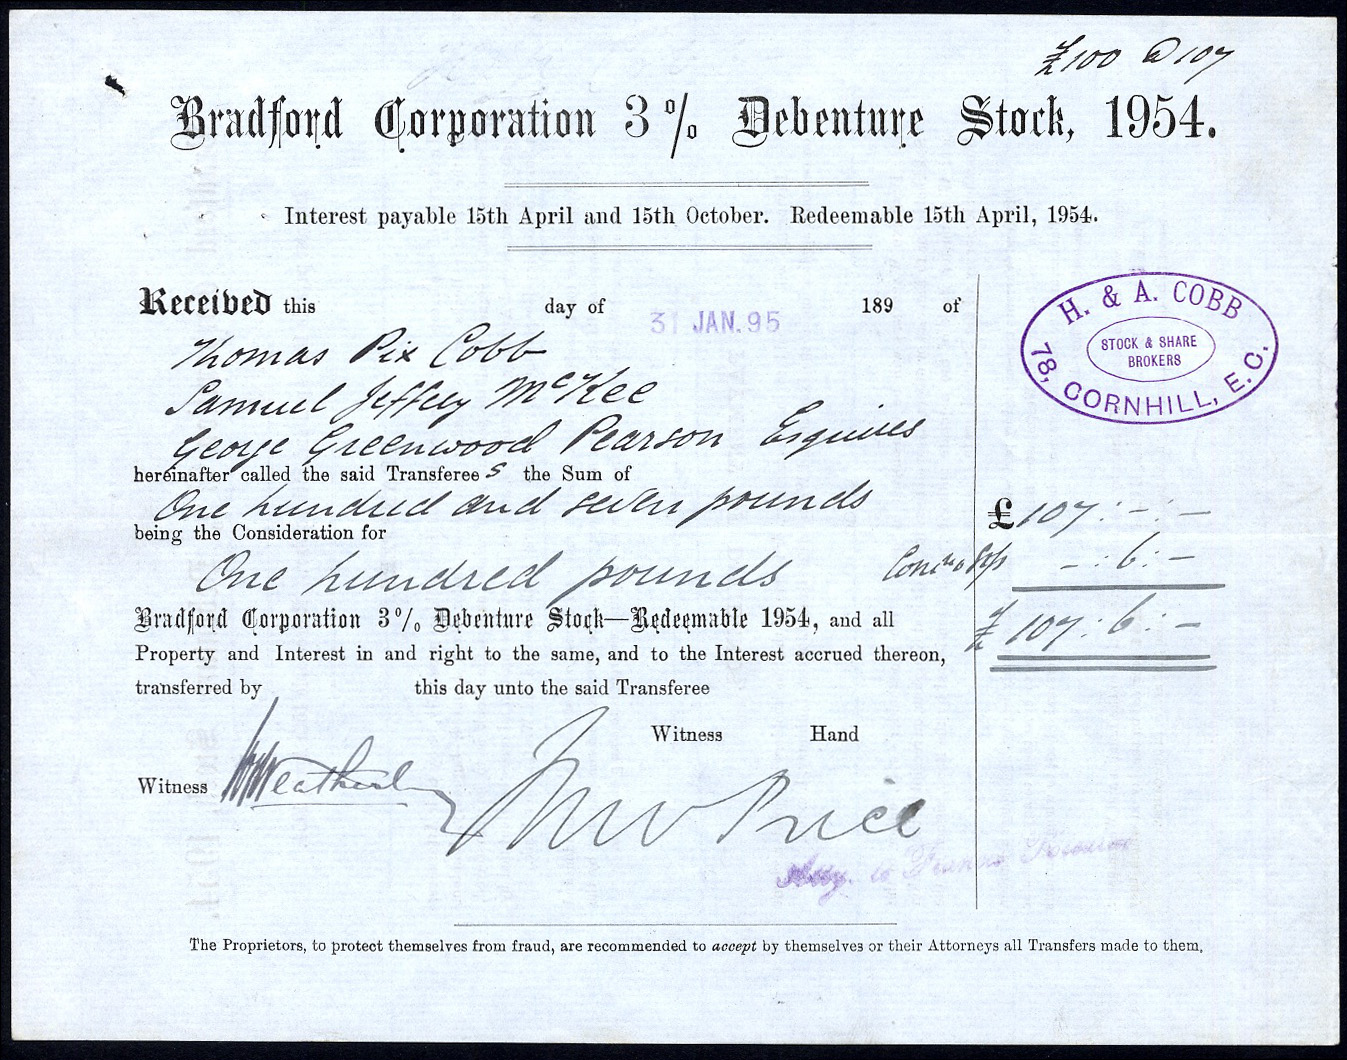 £100 @ 107
Bradford Corporation 3% Debenture Stock, 1954.
Interest payable 15th April and 15th October. Redeemable 15th April, 1954.
Received this day of 31 JAN. 95 189 of
Thomas Pix Cobb
Samuel Jeffrey McKee
George Greenwood Pearson Esquires
hereinafter called the said Transferees the Sum of
One hundred and seven pounds £107 : - : -
being the Consideration for
One hundred pounds - : 6 : -
Bradford Corporation 3% Debenture Stock—Redeemable 1954, and all £107 : 6 : -
Property and Interest in and right to the same, and to the Interest accrued thereon,
transferred by this day unto the said Transferee
Witness Hand
Witness
Price
H. & A. COBB
STOCK & SHARE
BROKERS
78, CORNHILL, E.C.
The Proprietors, to protect themselves from fraud, are recommended to accept by themselves or their Attorneys all Transfers made to them.